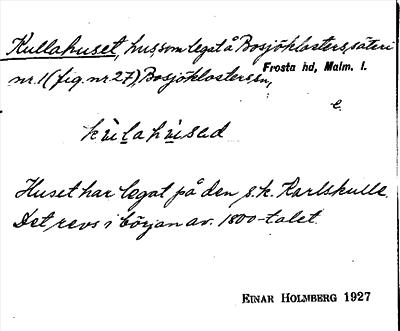 Kullahuset, hus, som legat å Bosjöklosters, säteri
nr. 1 (fig. nr 27), Bosjöklosters sn,
Frosta hd, Malm. l.
e.
Huset har legat på den s.k. Karlskulle.
Det revs i början av 1800-talet.
EINAR HOLMBERG 1927